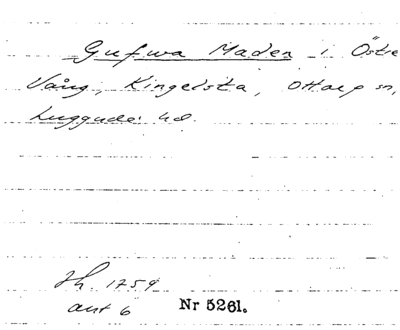 Gufwa Maden i Östre
Vång, Kingelsta, Ottarp sn,
Luggude hd.
Jh. 1759
akt 6 Nr 5261.